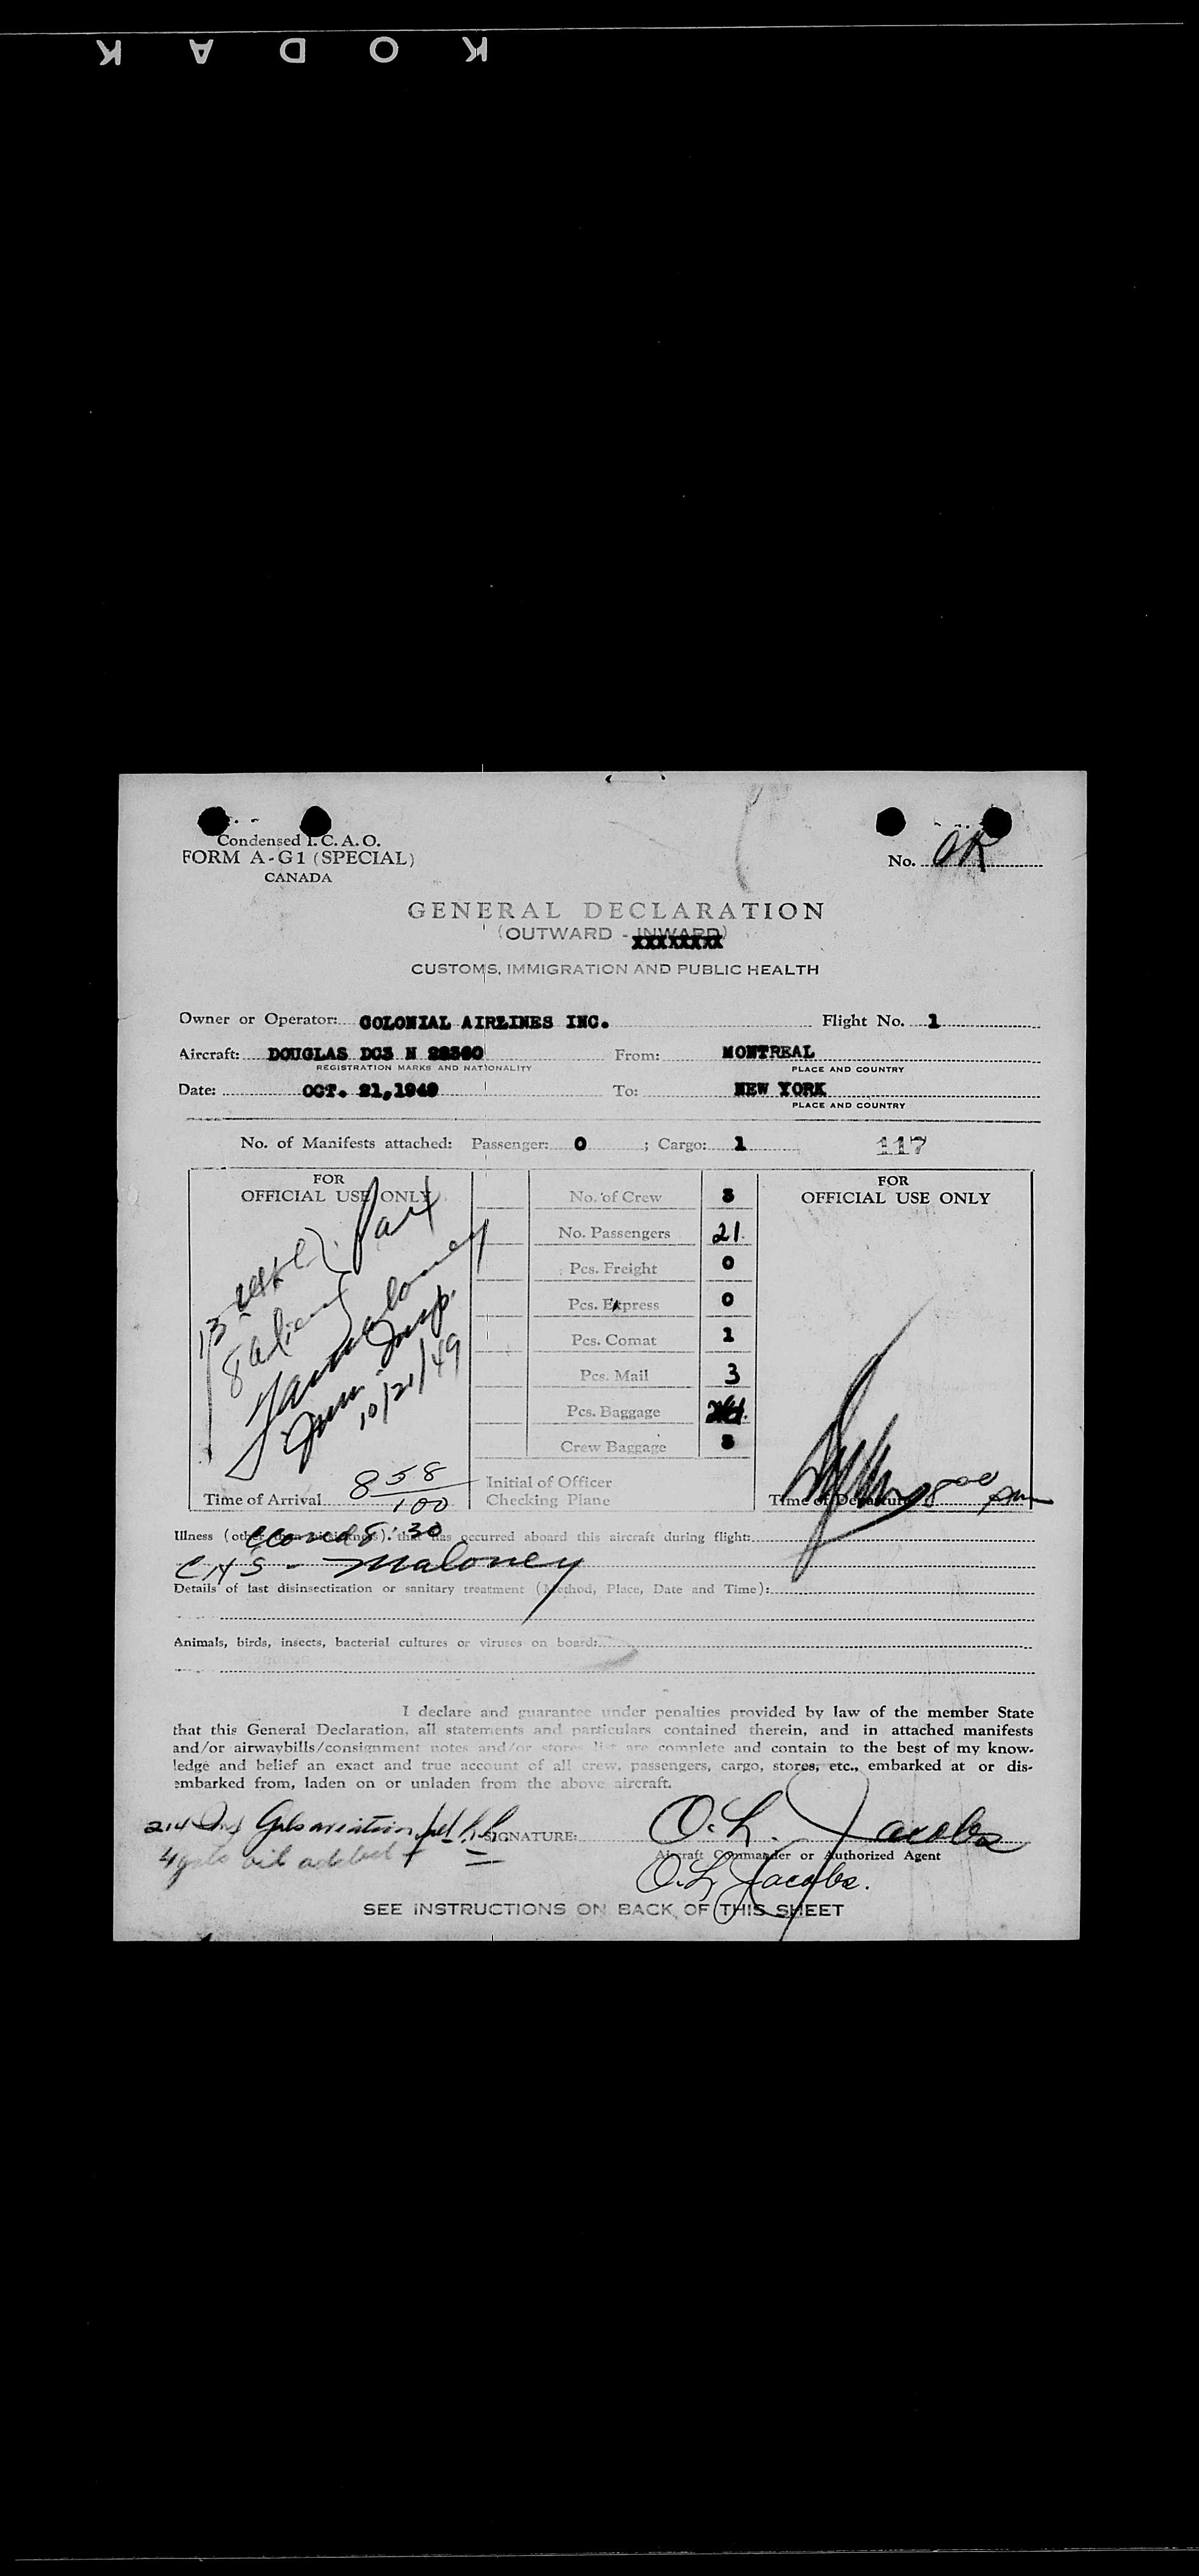 KODAK
Condensed I.C.A.O.
FORM A-G1 (SPECIAL)
CANADA
No. OK
GENERAL DECLARATION
(OUTWARD - INWARD)
CUSTOMS, IMMIGRATION AND PUBLIC HEALTH
Owner or Operator: COLONIAL AIRLINES INC. Flight No. 1
Aircraft: DOUGLAS DC3 N From: MONTREAL
REGISTRATION MARKS AND NATIONALITY PLACE AND COUNTRY
Date: OCT. 21,1949 To: NEW YORK
PLACE AND COUNTRY
No. of Manifests attached: Passenger: 0 ; Cargo: 1 117
FOR
OFFICIAL USE ONLY
13
8 aliens
Maloney
Imm. Insp.
10/21/49
Time of Arrival 8 58/100
No. of Crew 3
No. Passengers 21
Pcs. Freight 0
Pcs. Express 0
Pcs. Comat 1
Pcs. Mail 3
Pcs. Baggage
Crew Baggage 3
Initial of Officer
Checking Plane
FOR
OFFICIAL USE ONLY
Time of Departure 8 00 pm
Illness (other than airsickness) that has occurred aboard this aircraft during flight:
8:30
CHS - Maloney
Details of last disinsectization or sanitary treatment (Method, Place, Date and Time):
Animals, birds, insects, bacterial cultures or viruses on board:
I declare and guarantee under penalties provided by law of the member State
that this General Declaration, all statements and particulars contained therein, and in attached manifests
and/or airwaybills/consignment notes and/or stores list are complete and contain to the best of my know-
ledge and belief an exact and true account of all crew, passengers, cargo, stores, etc., embarked at or dis-
embarked from, laden on or unladen from the above aircraft.
214 Gals aviation
4 gals oil added
SIGNATURE: O. L. Jacobs
Aircraft Commander or Authorized Agent
O. L. Jacobs.
SEE INSTRUCTIONS ON BACK OF THIS SHEET